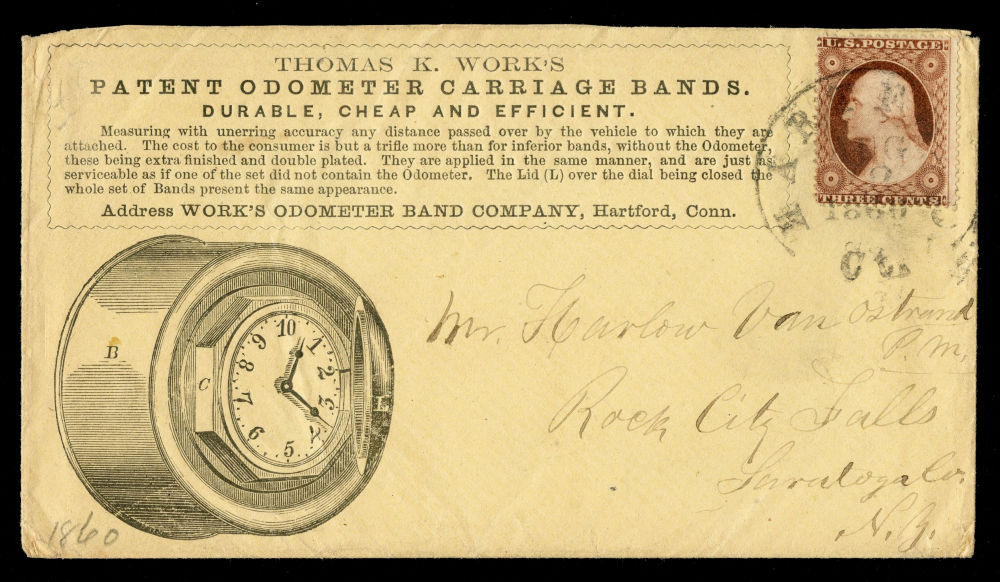 THOMAS K. WORK'S
PATENT ODOMETER CARRIAGE BANDS.
DURABLE, CHEAP AND EFFICIENT.
Measuring with unerring accuracy any distance passed over by the vehicle to which they are
attached. The cost to the consumer is but a trifle more than for inferior bands, without the Odometer,
these being extra finished and double plated. They are applied in the same manner, and are just as
serviceable as if one of the set did not contain the Odometer. The Lid (L) over the dial being closed the
whole set of Bands present the same appearance.
Address WORK'S ODOMETER BAND COMPANY, Hartford, Conn.
U.S. POSTAGE
THREE CENTS
1860
B
C
10
1
2
3
5
6
7
8
9
Mr. Harlow Van Ostrand
P.M,
Rock City Falls
Saratoga Co.
N.Y.
1860